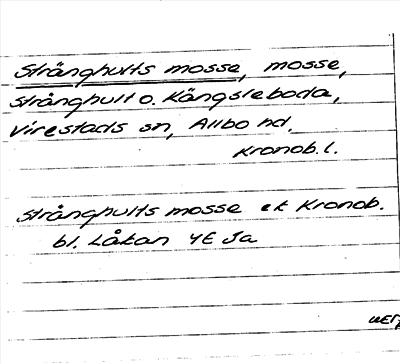 Stränghults mosse, mosse,
Strånghult o. Kängsleboda,
Virestads sn, Allbo hd.
Kronob. l.
Strånghults mosse ek Kronob.
bl. Låkan 4E Ja